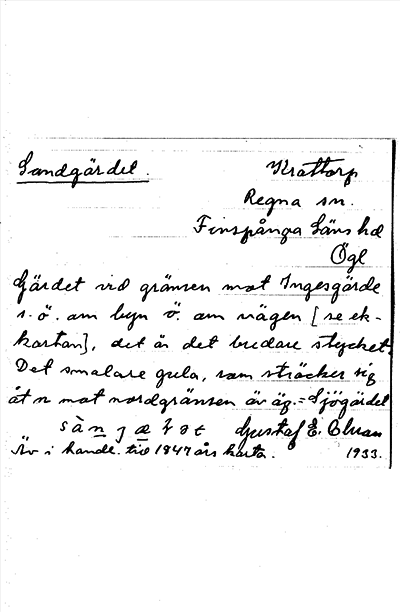 Sandgärdet. Krattorp
Regna sn.
Finspånga läns hd
Ögl
Gärdet vid gränsen mot Ingesgärde
s.ö. om byn ö. om vägen [se ek-
kartan], det är det bredare stycket.
Det smalare gula, som sträcker sig
åt n mot nordgränsen äv äg. = Sjögärdet
Gustaf E. Olsson
Äv i handl. till 1847 års karta. 1933.